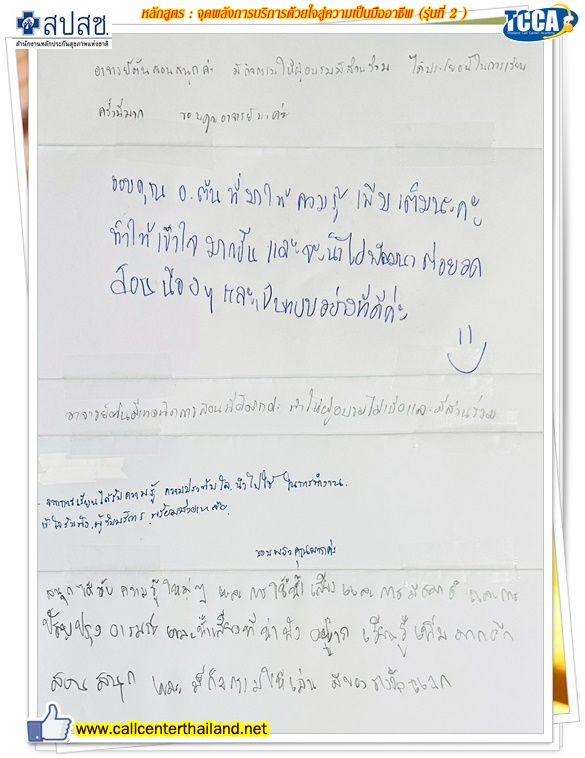 หลักสูตร : จุดพลังการบริการด้วยใจสู่ความเป็นมืออาชีพ (รุ่นที่ 2 )
สปสช.
สำนักงานหลักประกันสุขภาพแห่งชาติ
TCCA
อาจารย์ต้นสอนสนุกค่ะ มีกิจกรรมให้ผู้อบรมมีส่วนร่วม ได้ประโยชน์ในการเรียน
ครั้งนี้มาก ขอบคุณอาจารย์นะค่ะ
ขอบคุณ อ.ต้น ที่มาให้ ความรู้ เพิ่มเติมนะคะ
ทำให้เข้าใจ มากขึ้น และจะนำไปพัฒนา ต่อยอด
สอนน้องๆ และเป็นแบบอย่างที่ดีค่ะ
อาจารย์ต้นมีเทคนิคการสอนที่ดีมากค่ะ ทำให้ผู้อบรมไม่เบื่อและมีส่วนร่วม
- จากการเรียนได้รับความรู้ ความประทับใจ นำไปใช้ ในการทำงาน.
เข้าใจรับฟัง ผู้รับบริการ พร้อมช่วยเหลือ.
ขอบพระคุณมากค่ะ
สนุก ได้รับ ความรู้ใหม่ๆ และการใช้น้ำเสียง และ การมีสมาธิ และการ
ปรับปรุง อารมณ์ และน้ำเสียงที่น่าฟัง อยาก เรียนรู้เพิ่มมากอีก
สอน สนุก และ มีกิจกรรมให้เล่น มีของรางวัลแจก
www.callcenterthailand.net